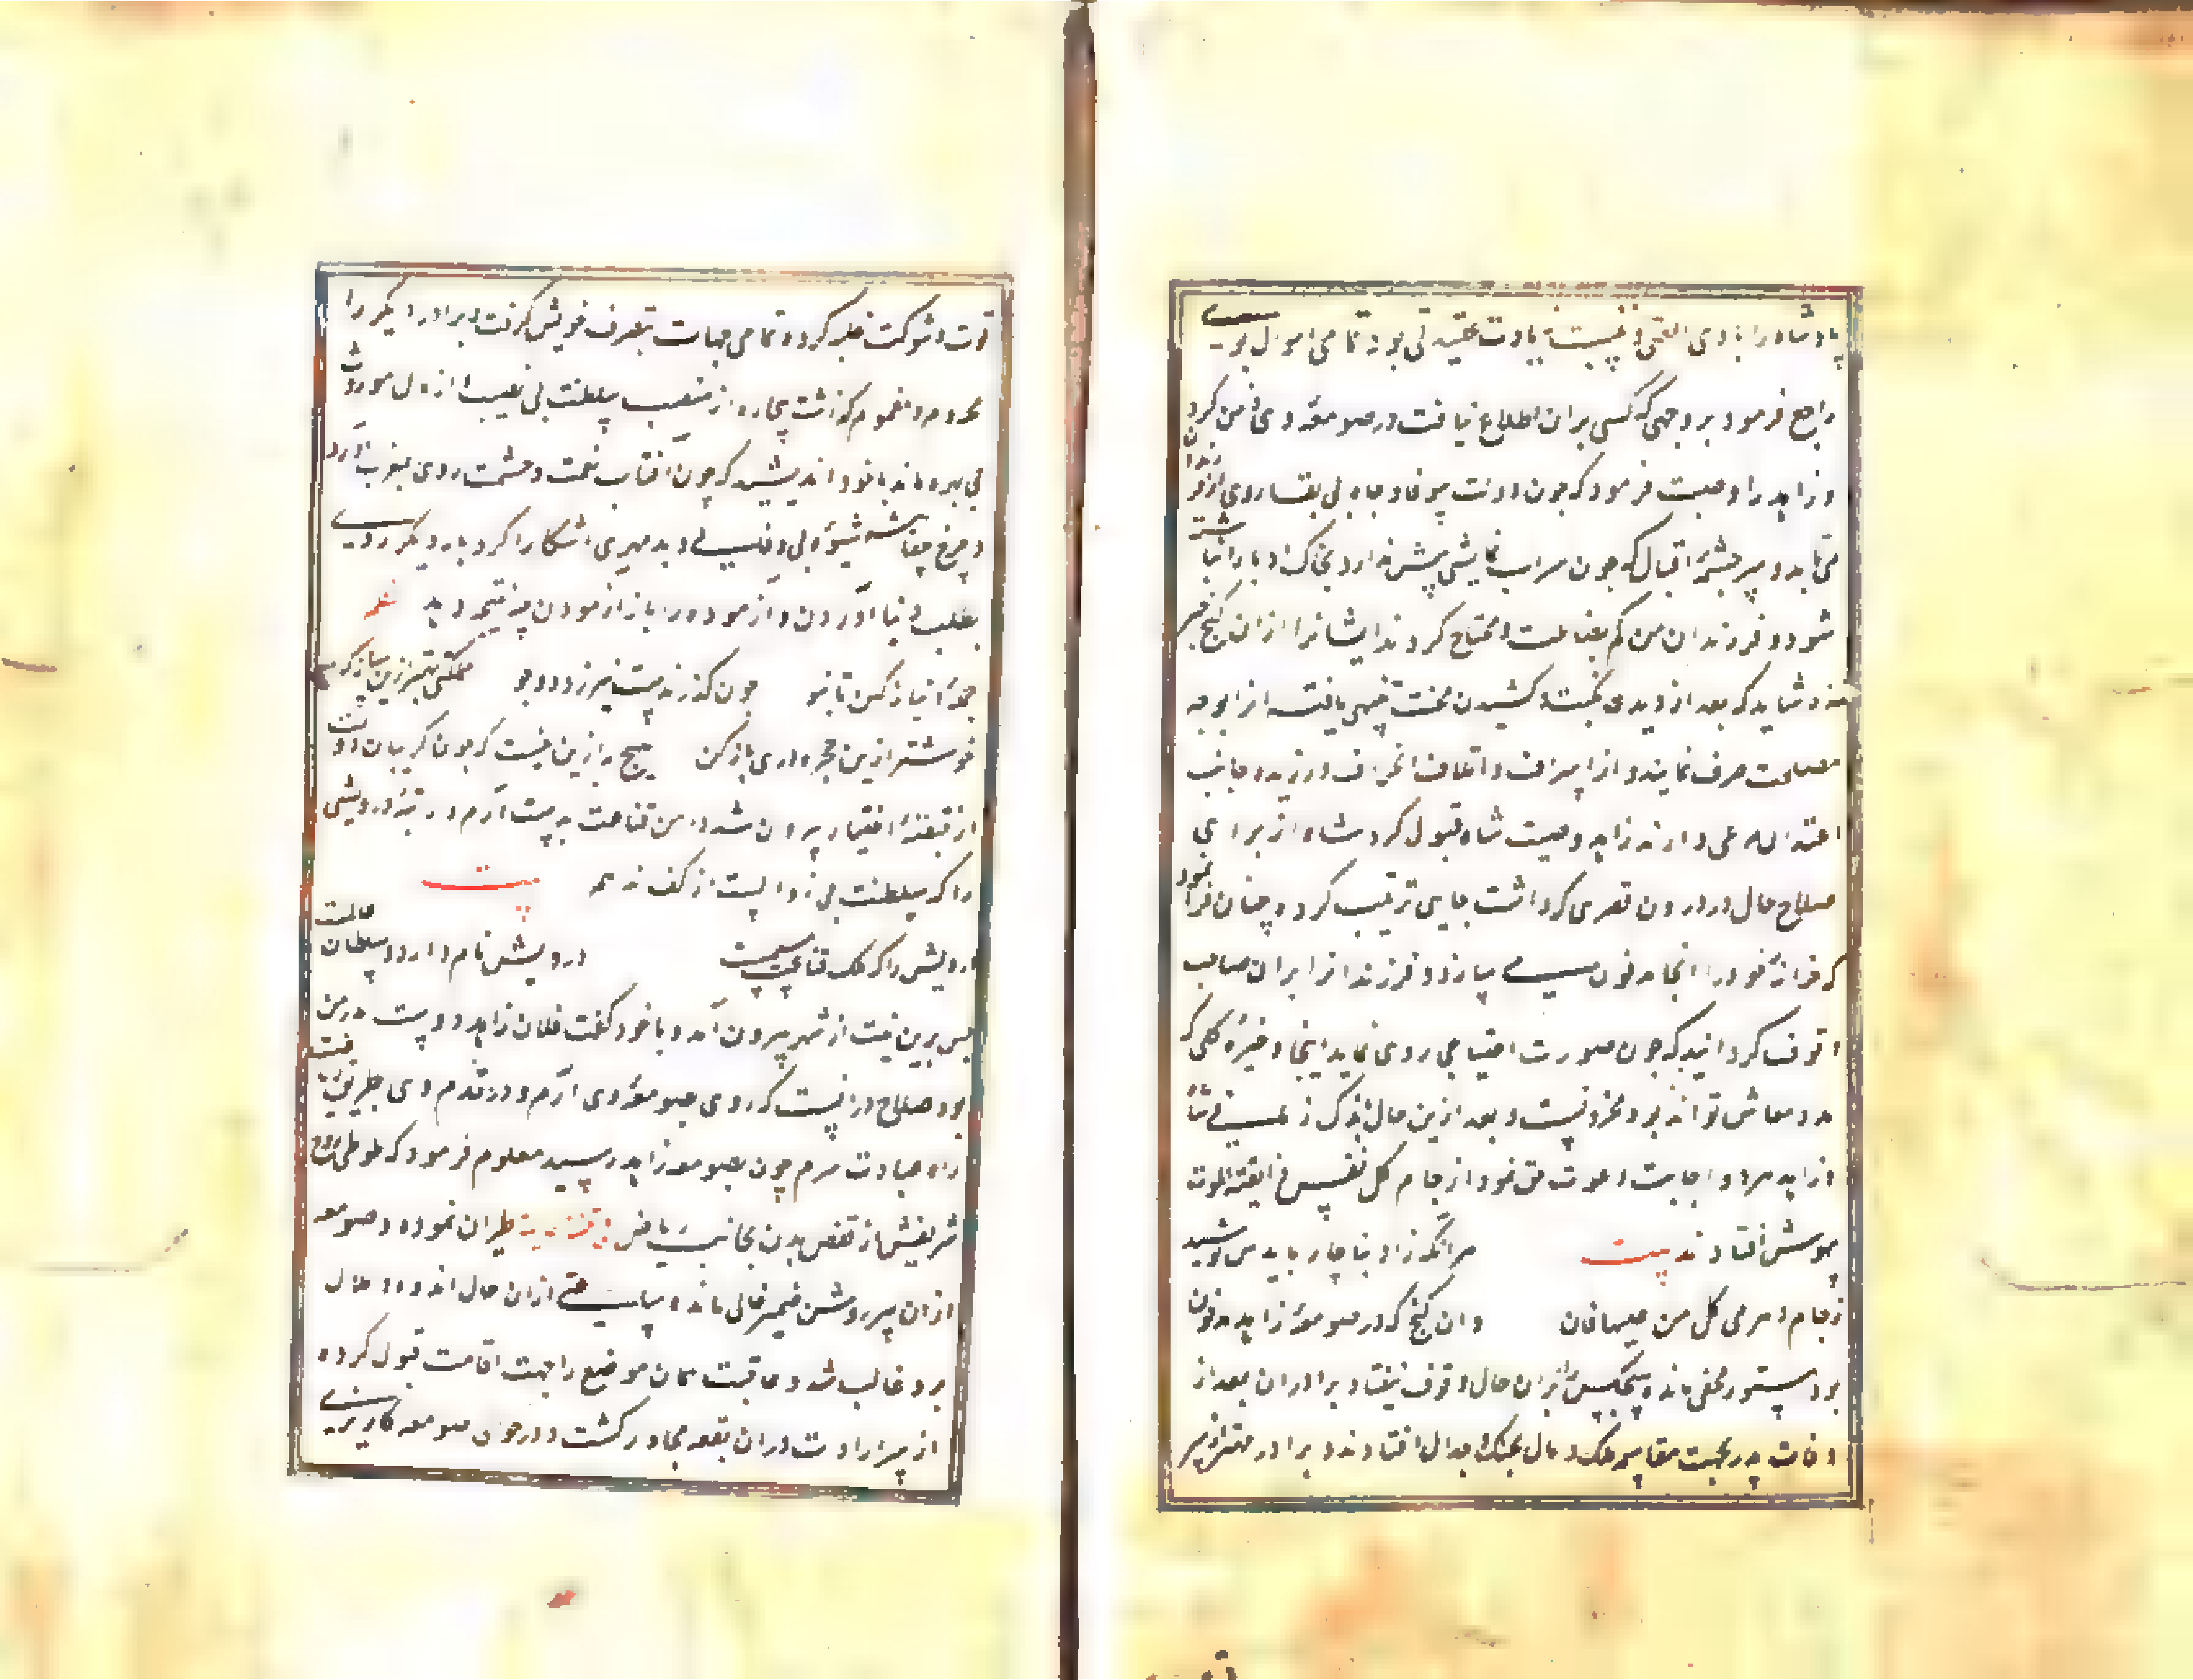 پادشاه را با وی الفتی و نسبت بارادت عقیدتی بود تمامی اموال بوی
راجع فرمود بر وجهی که کسی بران اطلاع نیافت در صومعه وی دفن کرد
و زاهد را وصیت فرمود که چون دولت بیوفا و جاه بی بقا روی از فرزندان
من بتابد و سرچشمه اقبال که چون سراب نمایشی بیش ندارد بخاک ادبار انباشته
شود و فرزندان من کم بضاعت و محتاج کردند ایشانرا ازان کنج خبر
ده و شاید که بعد از دیدن نکبت و کشیدن محنت تنبهی یافته انرا بوجه
مصلحت صرف نمایند و از اسراف و اتلاف انحراف ورزیده جانب
اعتدال مرعی دارند زاهد وصیت شاه قبول کرد شاه از برای
صلاح حال در درون قصری که داشت جایی ترتیب کرد و چنان فرا نمود
که خزانه خود را انجا مدفون می سازد و فرزندانرا بران صاحب
وقوف کردانید که چون صورت احتیاجی روی نماید اینجا ذخیره کلی که
مدد معاش تواند بود مخزونست و بعد ازین حال باندک زمانی شاه
و زاهد هر دو اجابت دعوت حق نمود از جام کل نفس ذایقة الموت
بیهوش افتادند بیت هرانکه زاد بناچار بایدش نوشید
ز جام دهر می کل من علیها فان وان کنج که در صومعه زاهد مدفون
بود مستور و مخفی ماند و هیچکس بران حال وقوف نیفتاد برادران بعد از
وفات پدر بجهت مقاسم ملک و مال بجنک و جدال افتادند و برادر مهتر بزور
قوت و شوکت غلبه کرده تمامی جهات بتصرف خویش کرفت و برادر دیکر را
محروم و مغموم کذاشت بیچاره از منصب سلطنت بی نصیب و از مال موروث
بی بهره ماند با خود اندیشید که چون آفتاب نعمت و حشمت روی بغروب آرد
و چرخ جفا پیشه شیوه بی وفایی و بد مهری اشکارا کرد بار دیکر روی
بطلب دنیا آوردن و آزموده را باز ازمودن چه نتیجه دهد شعر
جمله دنیا ز کهن تا بنو چون کذرنده است نیرزد دو جو ملکتی بهتر ازین ساز کن
خوشتر ازین حجره دری باز کن هیچ به ازین نیست که چون کریبان دولت
از قبضه اختیار بیرون شد دامن قناعت بدست آرم و رتبه درویشی
را که سلطنت بی زوالست از کف ندهم بیت
درویش را که ملک قناعت مسلمست درویش نام دارد و سلطان عالمست
پس برین نیت از شهر بیرون آمد و با خود کفت فلان زاهد دوست پدر من
بود صلاح درانست که روی بصومعه وی آرم و در قدم وی طریق ریاضت
راه عبادت سپرم چون بصومعه زاهد رسید معلوم فرمود که طوطی روح
شریفش از قفص بدن بجانب ریاض طیران نموده و صومعه
ازان پیر روشن ضمیر خالی مانده ساعتی ازان حال اندوه و ملال
برو غالب شد و عاقبت همان موضع را جهت اقامت قبول کرده
از سر ارادت دران بقعه مجاور کشت و در حوالی صومعه کاریزی